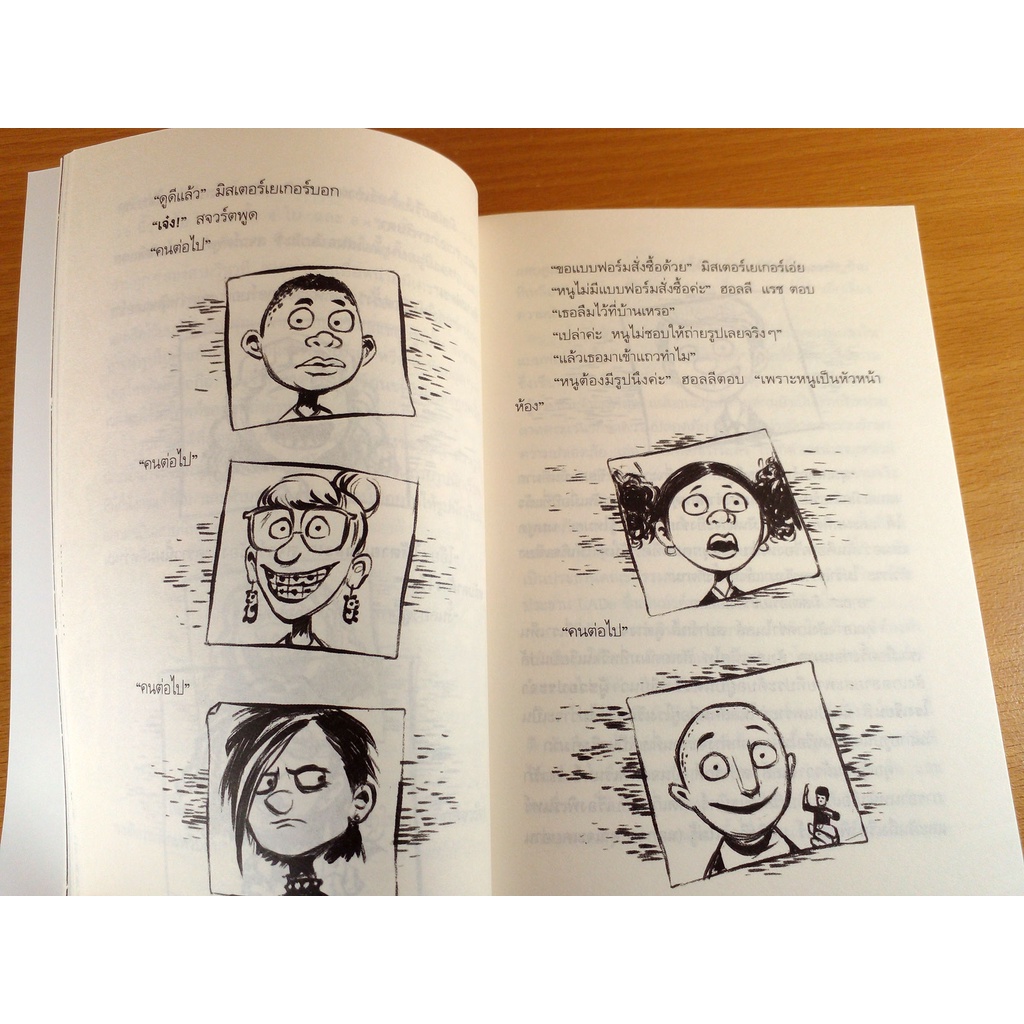 “ดูดีแล้ว” มิสเตอร์เยเกอร์บอก
“เจ๋ง!” สจวร์ตพูด
“คนต่อไป”
“คนต่อไป”
“คนต่อไป”
“ขอแบบฟอร์มสั่งซื้อด้วย” มิสเตอร์เยเกอร์เอ่ย
“หนูไม่มีแบบฟอร์มสั่งซื้อค่ะ” ฮอลลี แรช ตอบ
“เธอลืมไว้ที่บ้านเหรอ”
“เปล่าค่ะ หนูไม่ชอบให้ถ่ายรูปเลยจริงๆ”
“แล้วเธอมาเข้าแถวทำไม”
“หนูต้องมีรูปนึงค่ะ” ฮอลลีตอบ “เพราะหนูเป็นหัวหน้า
ห้อง”
“คนต่อไป”